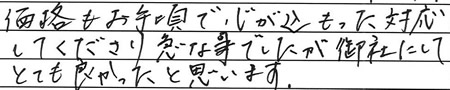 価格もお手頃で、心が込もった対応
してくださり急な事でしたが御社にして
とても良かったと思います。